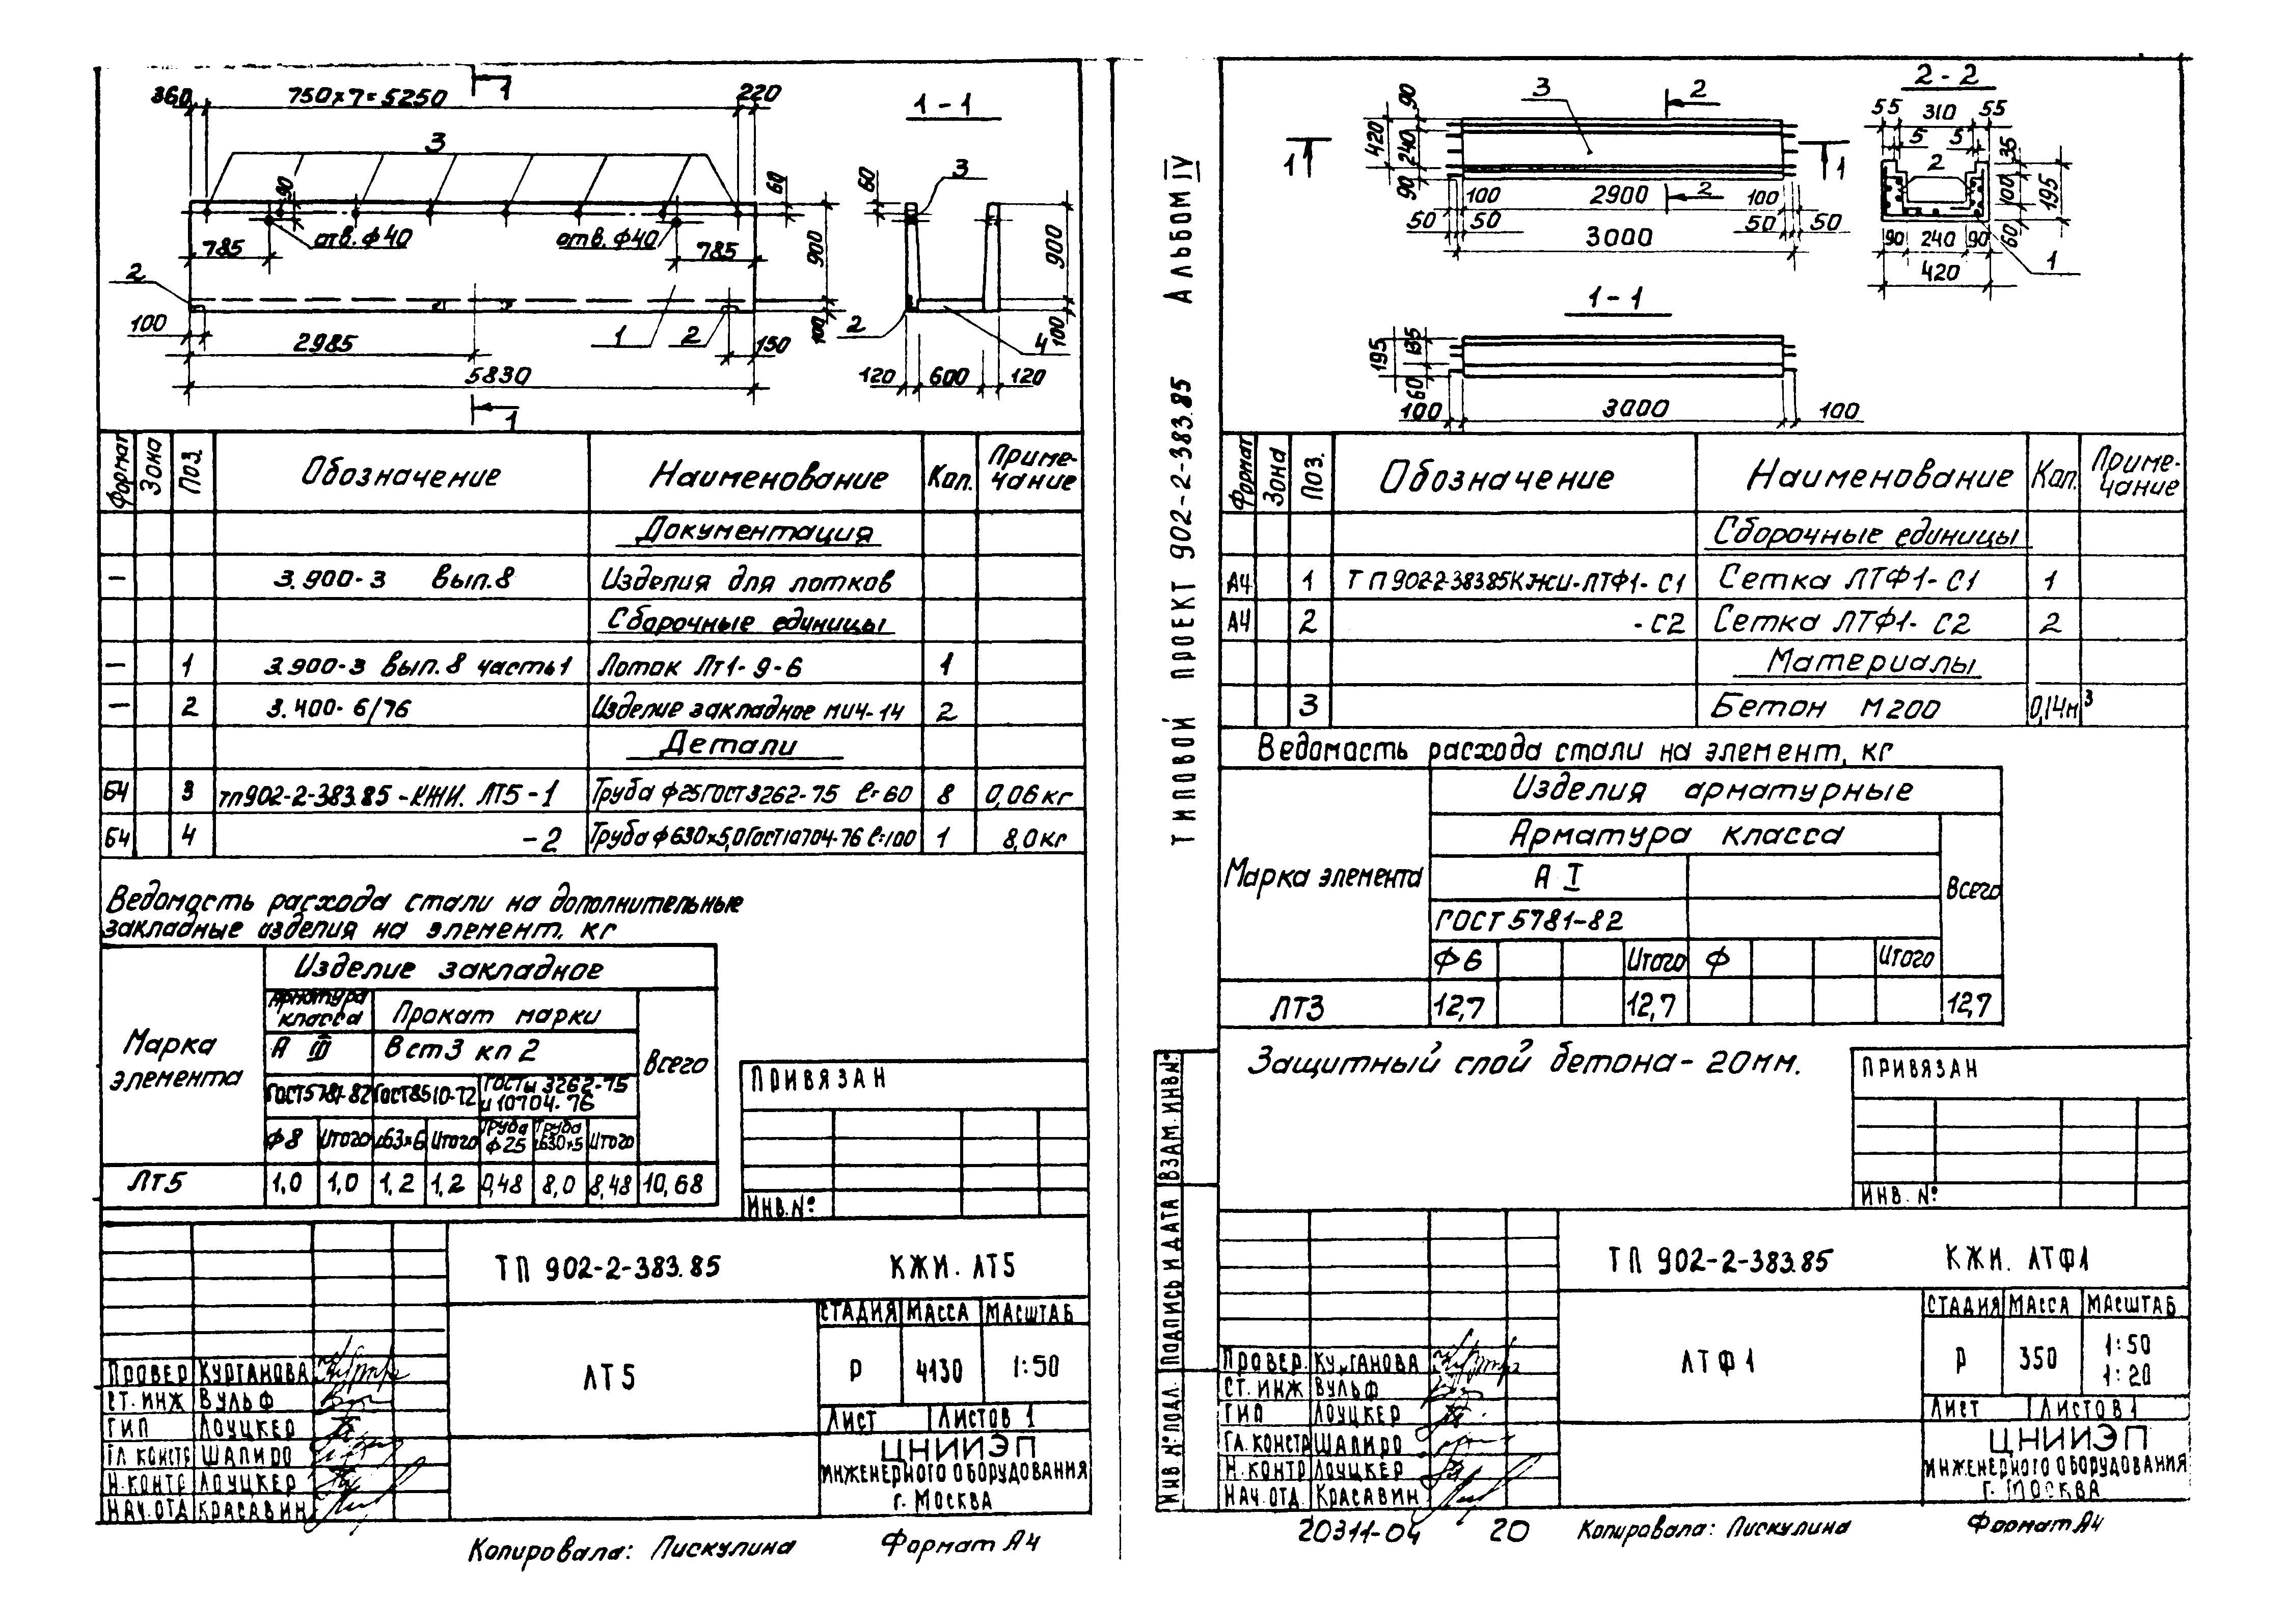 360 750×7=5250 220
1
1-1
3
90
60
отв. ф40 отв. ф40
785 785
900
100
2
100
2985
1
2
150
5830
1
60
3
900
100
2
4
120 600 120
Формат Зона Поз. Обозначение Наименование Кол. Приме-
чание
Документация
— 3.900-3 вып.8 Изделия для лотков
Сборочные единицы
— 1 3.900-3 вып.8 часть1 Лоток Лт1-9-6 1
— 2 3.400-6/76 Изделие закладное МИ4-14 2
Детали
Б4 3 ТП902-2-383.85-КЖИ. ЛТ5-1 Труба ф25 ГОСТ 3262-75 ℓ=60 8 0,06кг
Б4 4 -2 Труба ф630×5,0 ГОСТ 10704-76 ℓ=100 1 8,0кг
Ведомость расхода стали на дополнительные
закладные изделия на элемент, кг
Марка
элемента
Изделие закладное
Арматура
класса
Прокат марки
Всего
А III
Вст3 кп 2
ГОСТ5781-82 ГОСТ8510-72 ГОСТы 3262-75
и 10704-76
ф8 Итого ∟63×6 Итого Труба
ф25 Труба
630×5 Итого
ЛТ5 1,0 1,0 1,2 1,2 0,48 8,0 8,48 10,68
ПРИВЯЗАН
ИНВ.№
ТП 902-2-383.85 КЖИ. ЛТ5
ЛТ5
СТАДИЯ МАССА МАСШТАБ
Р 4130 1:50
Лист Листов 1
ЦНИИЭП
ИНЖЕНЕРНОГО ОБОРУДОВАНИЯ
г. МОСКВА
ПРОВЕР КУРГАНОВА
СТ. ИНЖ ВУЛЬФ
ГИП ЛОУЦКЕР
ГЛ. КОНСТР ШАПИРО
Н.КОНТР ЛОУЦКЕР
НАЧ.ОТД КРАСАВИН
Копировала: Пискулина Формат А4
ТИПОВОЙ ПРОЕКТ 902-2-383.85 АЛЬБОМ IV
3
2
90
420 240
90
1
1
100 2900 2 100
50 50 50 50
3000
2-2
55 310 55
5 5
2
35
100
195
60
90 240 90
420
1
1-1
195
135
60
100 3000 100
Формат Зона Поз. Обозначение Наименование Кол. Приме-
чание
Сборочные единицы
А4 1 ТП902-2-383.85КЖИ-ЛТФ1-С1 Сетка ЛТФ1-С1 1
А4 2 -С2 Сетка ЛТФ1-С2 2
Материалы
3 Бетон М200 0,14м³
Ведомость расхода стали на элемент, кг
Марка элемента
Изделия арматурные
Арматура класса
Всего
А I
ГОСТ 5781-82
Ф6 Итого Ф Итого
ЛТ3 12,7 12,7 12,7
Защитный слой бетона - 20мм.
ПРИВЯЗАН
ИНВ. №
ВЗАМ. ИНВ.№
ПОДПИСЬ И ДАТА
ИНВ № ПОДЛ.
ТП 902-2-383.85 КЖИ. ЛТФ1
ЛТФ1
СТАДИЯ МАССА МАСШТАБ
Р 350 1:50
1:20
Лист Листов 1
ЦНИИЭП
ИНЖЕНЕРНОГО ОБОРУДОВАНИЯ
г. МОСКВА
ПРОВЕР. КУРГАНОВА
СТ. ИНЖ ВУЛЬФ
ГИП ЛОУЦКЕР
ГЛ. КОНСТР ШАПИРО
Н.КОНТР ЛОУЦКЕР
НАЧ. ОТД. КРАСАВИН
20311-04 20 Копировала: Пискулина Формат А4